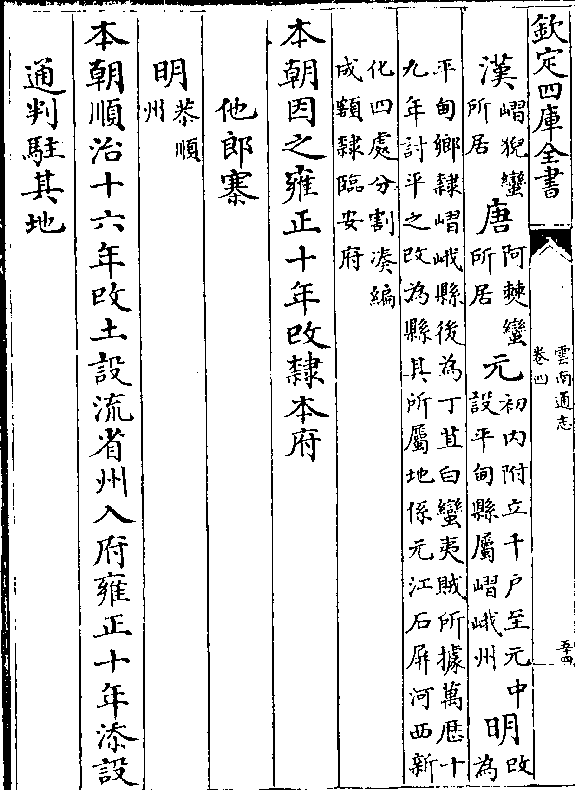 欽定四庫全書
雲南通志
卷四
五十四
漢嶍猊蠻所居唐阿𣰋蠻所居元初内附立千戸至元中設平甸縣屬嶍峨州明改為
平甸鄉隸嶍峨縣後為丁苴白蠻夷賊所據萬厯十九年討平之改為縣其所屬地係元江石屏河西新
化四處分割湊編成額隸臨安府
本朝因之雍正十年改隸本府
他郎寨
明恭順州
本朝順治十六年改土設流省州入府雍正十年添設
通判駐其地